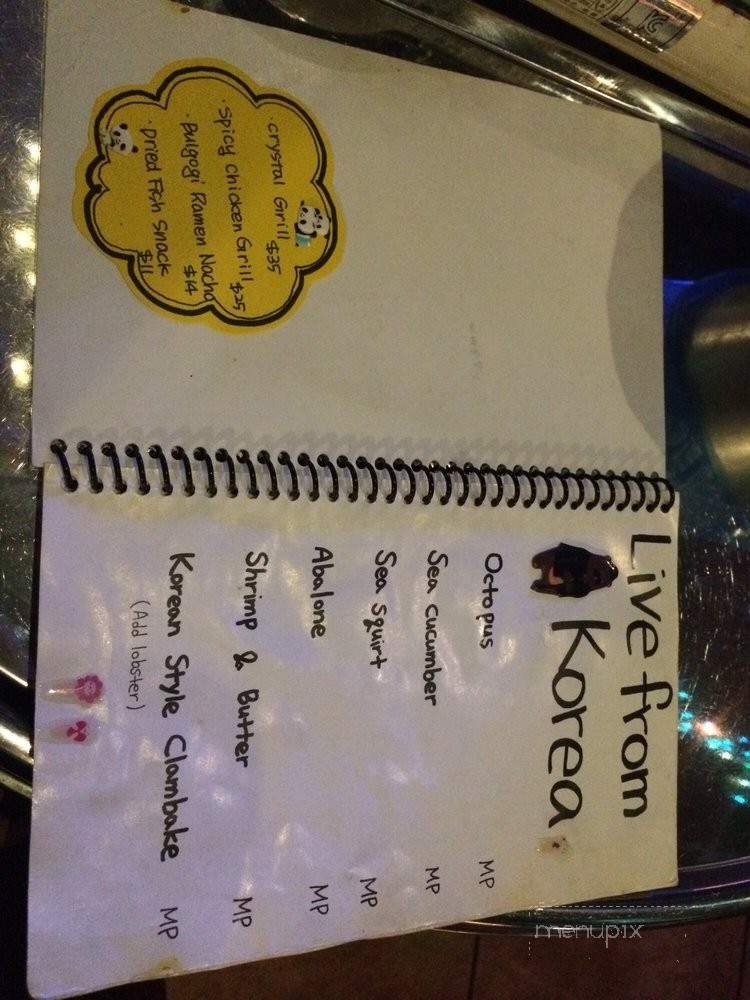 · crystal Grill $35
· spicy chicken Grill $25
· Bulgogi Ramen Nacho $14
· Dried Fish Snack $11
Live from
Korea
Octopus MP
Sea cucumber MP
Sea squirt MP
Abalone MP
Shrimp & Butter MP
Korean Style Clambake MP
(Add lobster)
menupix